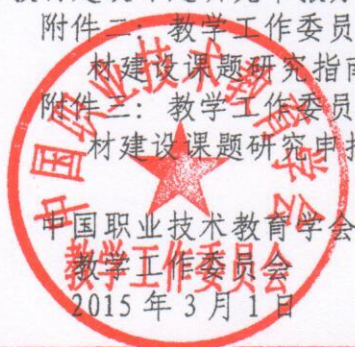 附件二: 教学工作委员
材建设课题研究指南
附件三: 教学工作委员
材建设课题研究申报
中国职业技术教育学会
教学工作委员会
2015年3月1日
中国职业技术教育学会
教学工作委员会